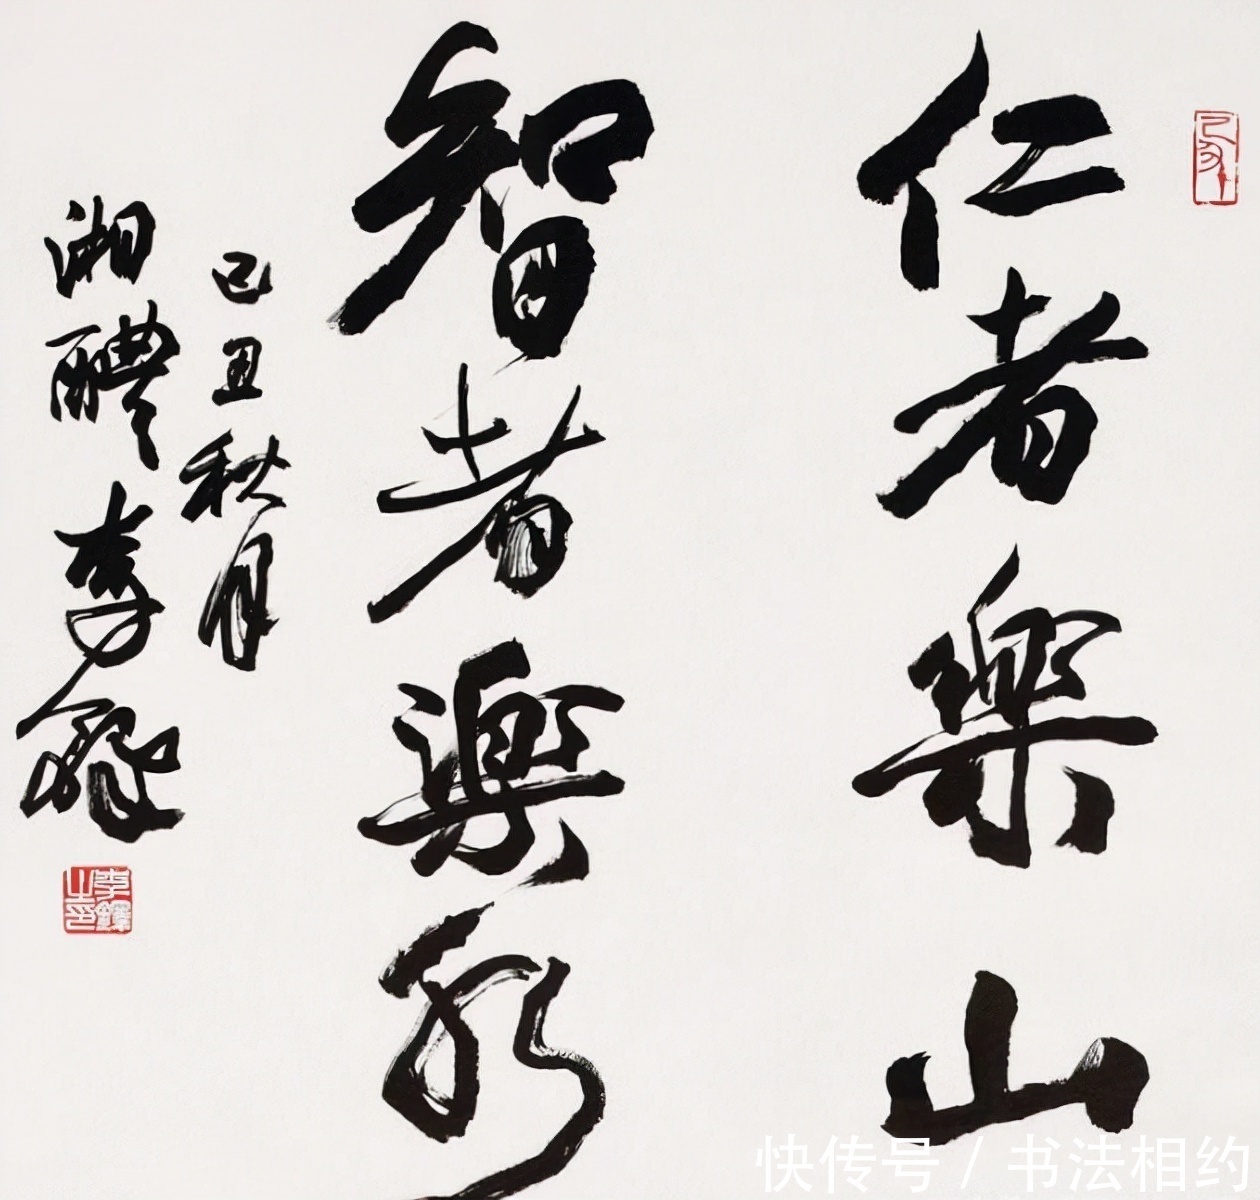 仁者樂山
智者樂水
己丑秋月
湘醴李鐸
李鐸之印
快传号 / 书法相约